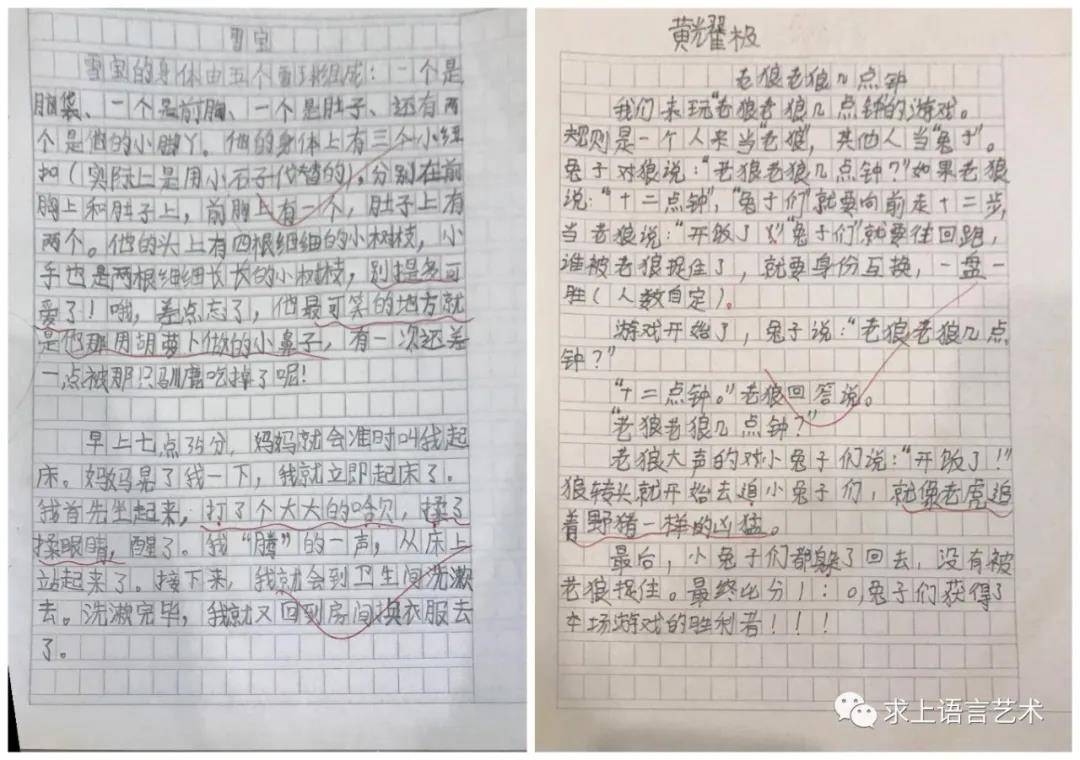 雪宝
雪宝的身体由五个雪球组成：一个是
脑袋、一个是前胸、一个是肚子、还有两
个是他的小脚丫。他的身体上有三个小纽
扣（实际上是用小石子代替的），分别在前
胸上和肚子上，前胸上有一个，肚子上有
两个。他的头上有四根细细的小树枝，小
手也是两根细细长长的小树枝，别提多可
爱了！哦，差点忘了，他最可笑的地方就
是他那用胡萝卜做的小鼻子，有一次还差
一点被那只驯鹿吃掉了呢！
早上七点35分，妈妈就会准时叫我起
床。妈妈晃了我一下，我就立即起床了。
我首先坐起来，打了个大大的哈欠，揉了
揉眼睛，醒了。我“腾”的一声，从床上
站起来了。接下来，我就会到卫生间洗漱
去。洗漱完毕，我就又回到房间换衣服去
了。
黄耀极
老狼老狼几点钟
我们来玩“老狼老狼几点钟的游戏。
规则是一个人来当“老狼”，其他人当“兔子”。
兔子对狼说：“老狼老狼几点钟？”如果老狼
说：“十二点钟”，“兔子们”就要向前走十二步，
当老狼说：“开饭了！”“兔子们”就要往回跑，
谁被老狼捉住了，就要身份互换，一盘一
胜（人数自定）。
游戏开始了，兔子说：“老狼老狼几点
钟？”
“十二点钟。”老狼回答说。
“老狼老狼几点钟？”
老狼大声的对小兔子们说：“开饭了！”
狼转头就开始去追小兔子们，就像老虎追
着野猪一样的凶猛。
最后，小兔子们都躲了回去，没有被
老狼捉住。最终比分1：0，兔子们获得了
本场游戏的胜利者！！！
求上语言艺术